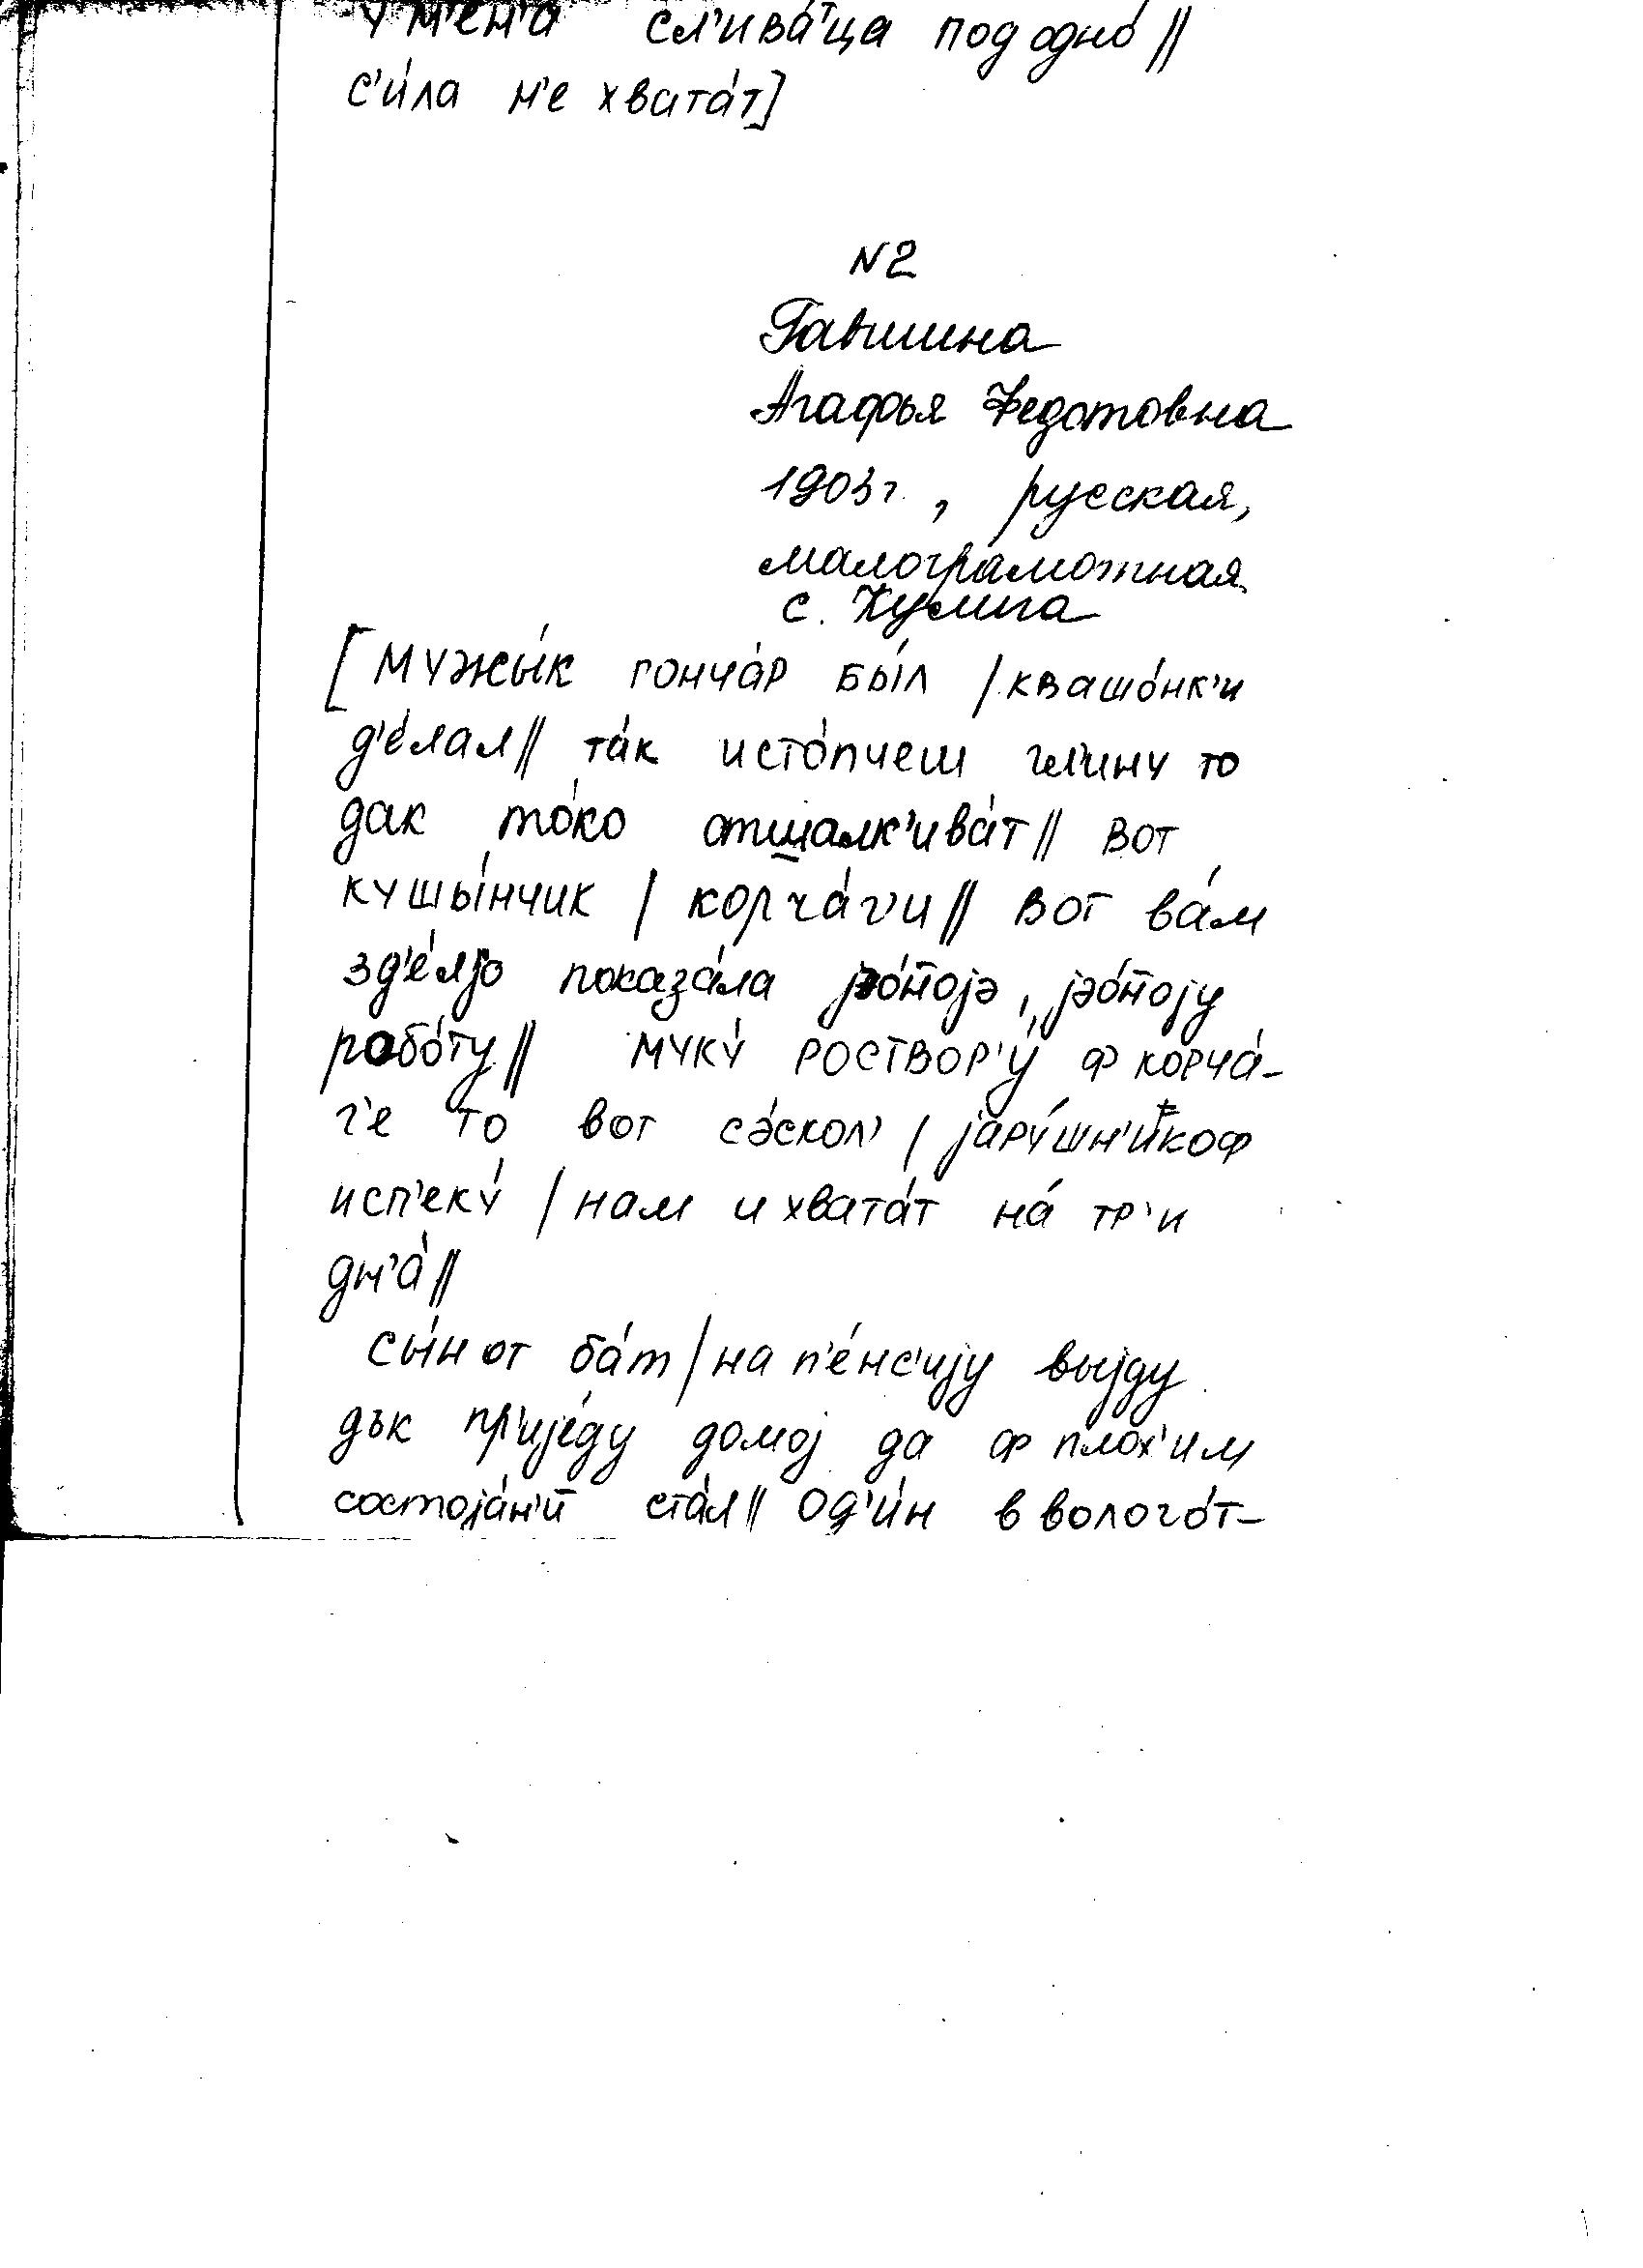 у м'ен'а сл'ива́т̄ца под одно́ //
с'и́ла н'е хвата́т]
N2
Гавшина
Агафья Федотовна
1903г., русская,
малограмотная
с. Кулига
[Мужы́к гонча́р бы́л / квашо́нк'и
д'е́лал // та́к исто́пчеш гл'ину то
дак то́ко отшалк'ива́т // вот
кушы́нчик / корча́γи // вот ва́м
зд'е́ляjо показа́ла jэ́то̄jэ, jэ́то̄jу
робо́ту // муку́ роствор'у́ ф корча́-
г'е то вот сэ́скол' / jару́шн'икоф
исп'еку́ / нам и хвата́т на́ тр'и
дн'а́ //
сы́н от ба́т / на п'е́нс'иjу выjду
дък пр'иjе́ду домоj да ф плох'им
состоjа́н'ӣ ста́л // од'и́н в волого́т-